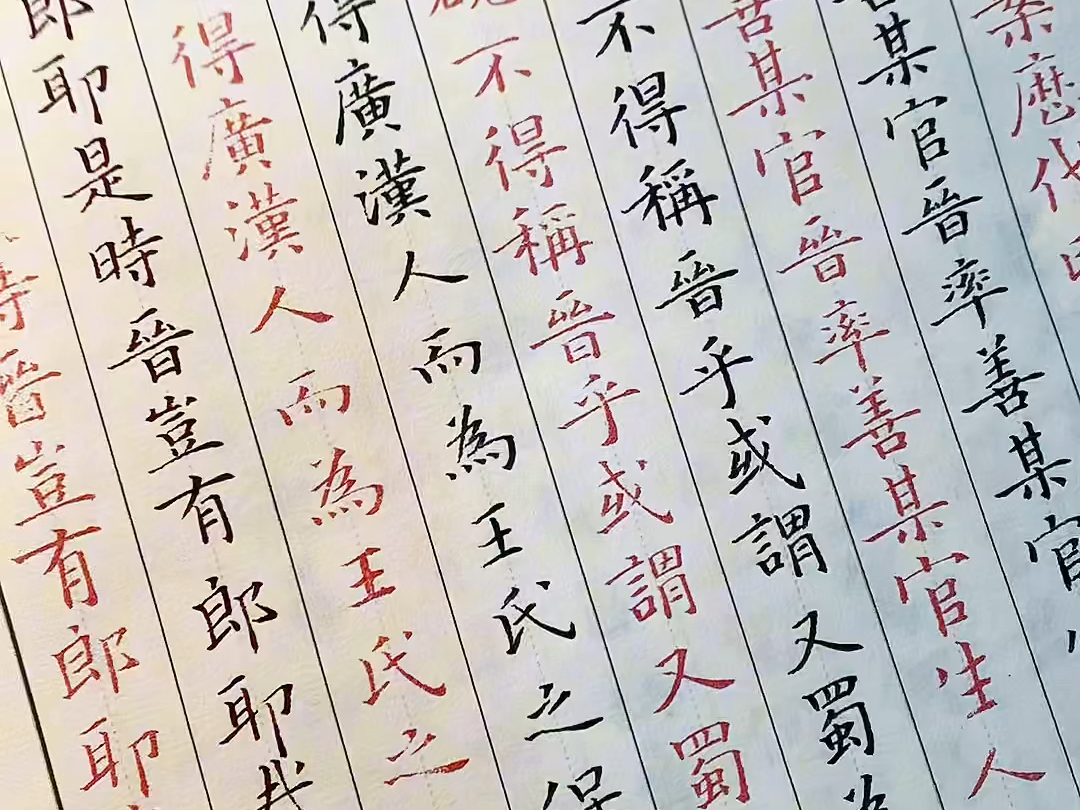 歷代
某官晉率善某官
某官晉率善某官生人
不得稱晉乎或謂又蜀
不得稱晉乎或謂又蜀
得廣漢人而為王氏之得
得廣漢人而為王氏之
郎耶是時晉豈有郎耶
晉豈有郎耶